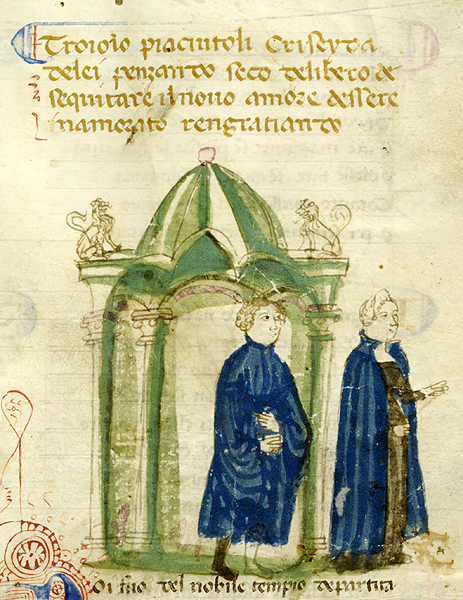 Troiolo piaciutoli Criseyda
delei penzando seco delibero de
sequitare il nouo amore dessere
inamorato rengratiando
oi fuo del nobile tempio departita